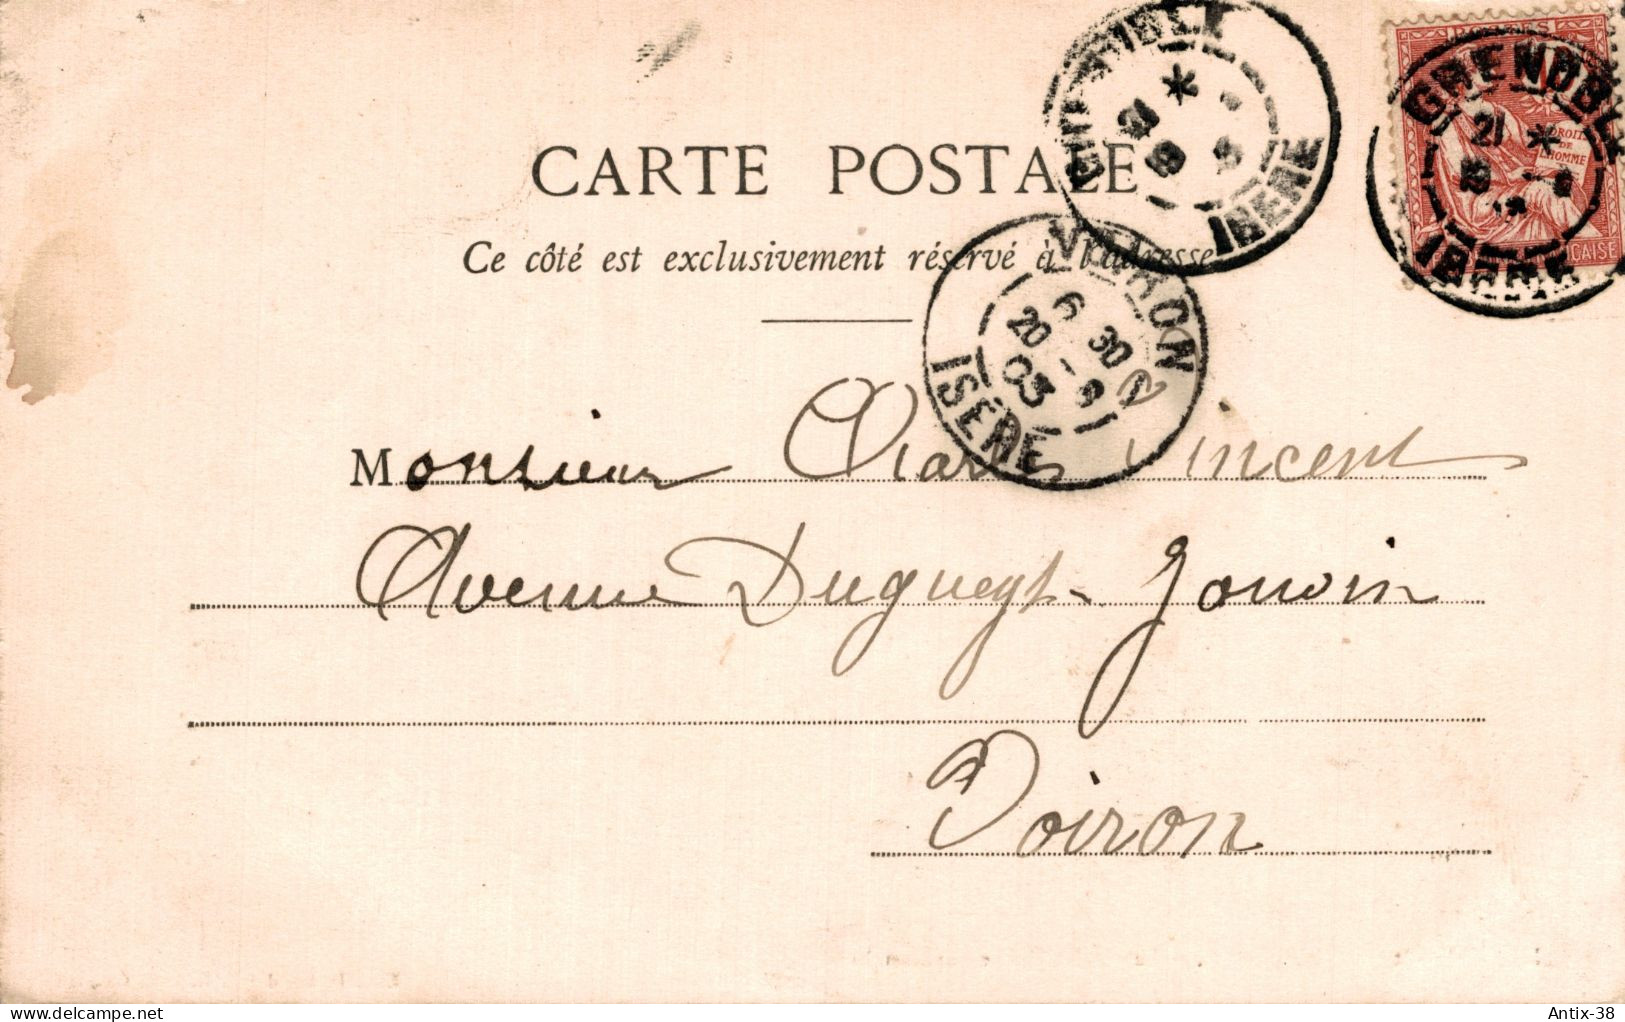 CARTE POSTALE
Ce côté est exclusivement réservé à l'adresse
GRENOBLE
21 *
ISERE
GRENOBLE
21 *
ISERE
DROITS
DE
L'HOMME
VOIRON
6 30
20 - 9
03
ISÈRE
Monsieur Charles Vincent
Avenue Dugueyt-Jouvin
Voiron
delcampe.net
Antix-38